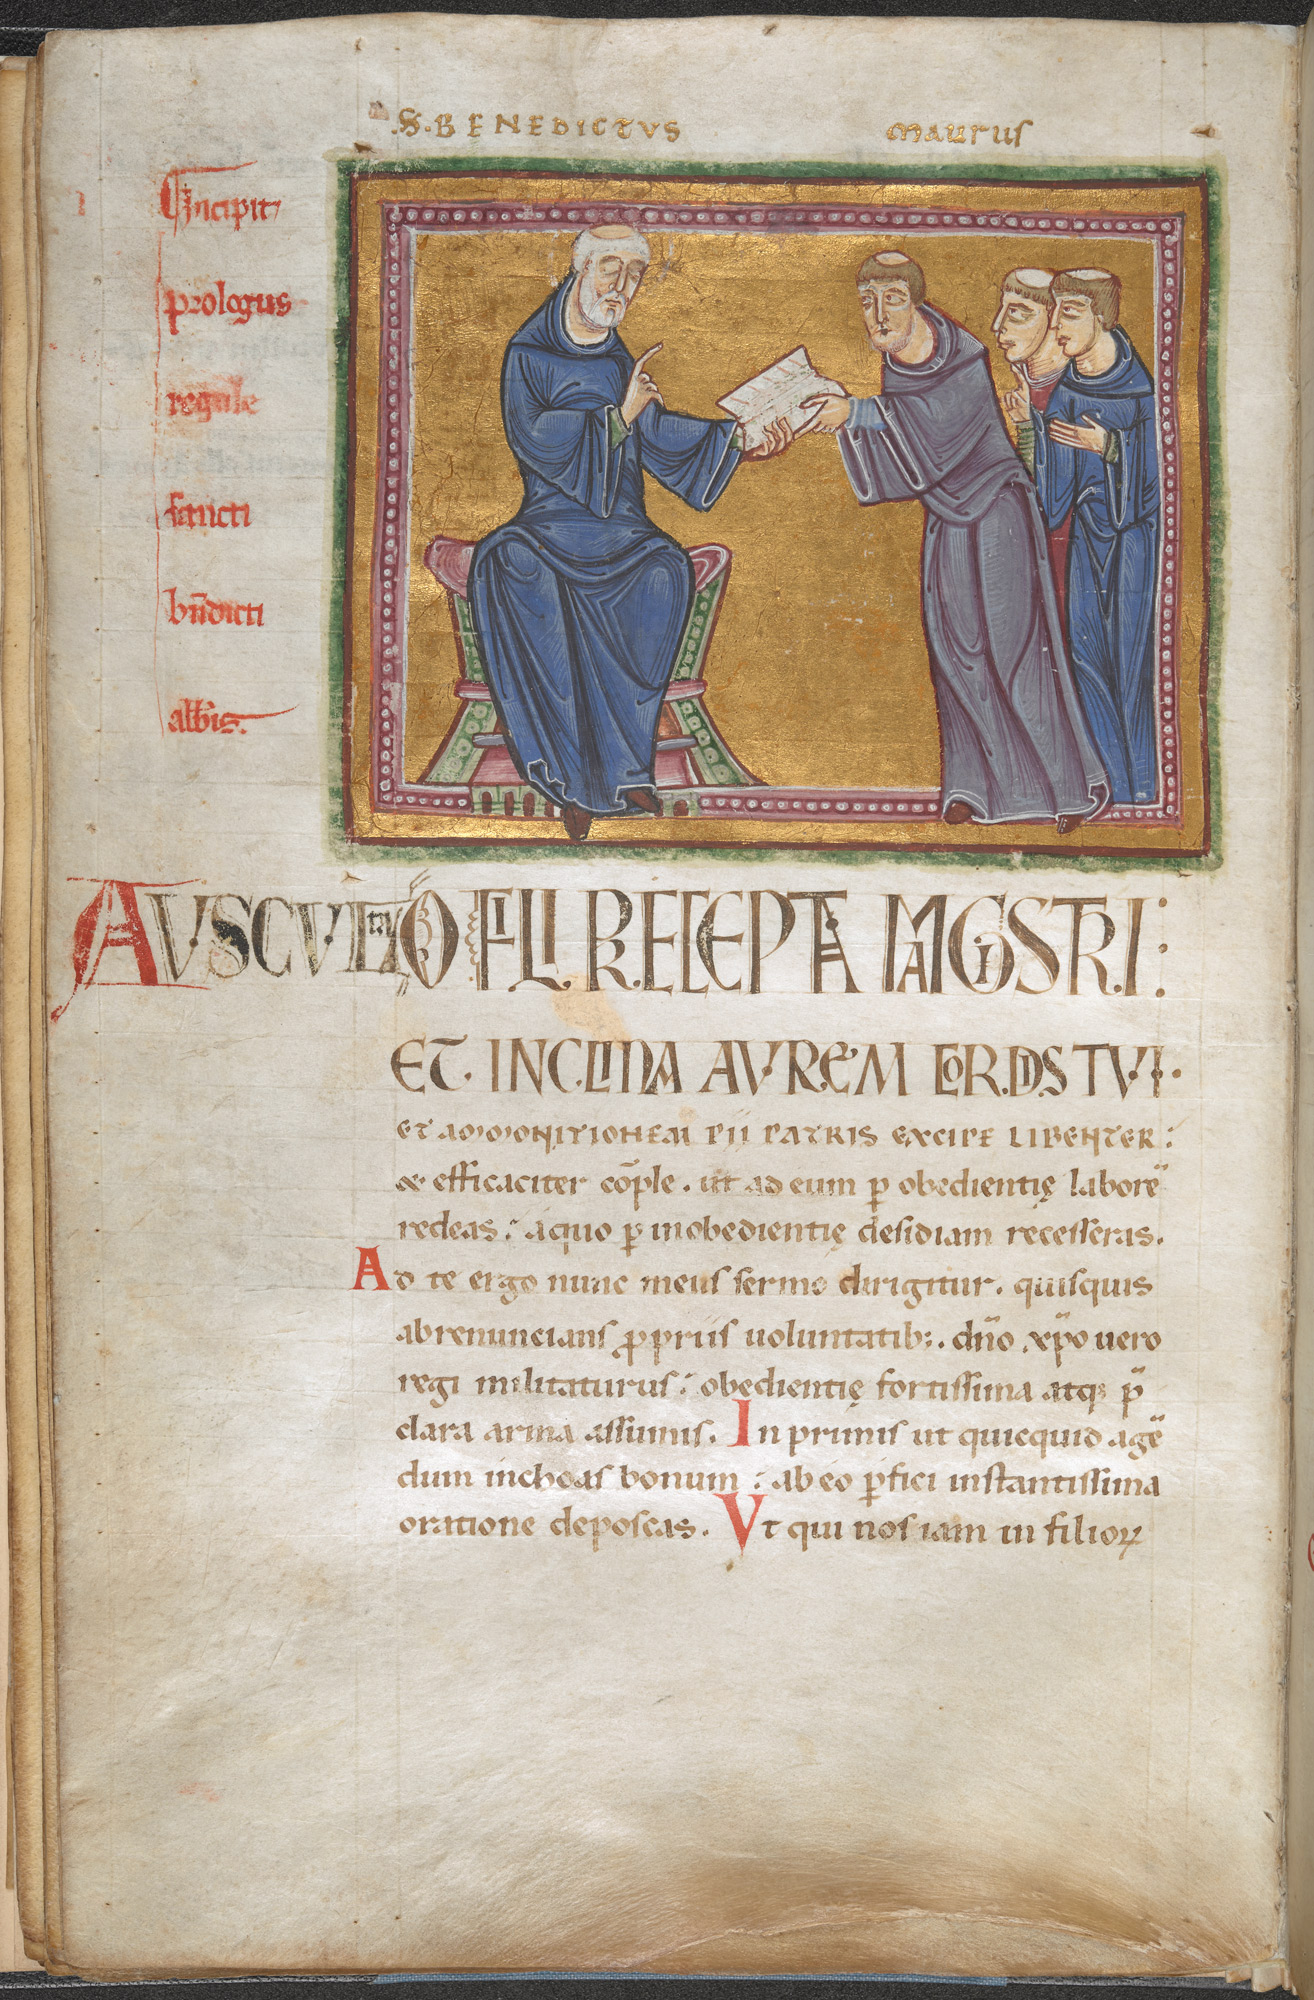 .S. BENEDICTUS
Maurus
Incipit
prologus
regule
sancti
bn̄dicti
abb̄is.
AUSCULTA O FILI PRECEPTA MAGISTRI:
ET INCLINA AUREM CORDIS TUI.
ET AMMONITIONEM PII PATRIS EXCIPE LIBENTER:
& efficaciter cōple. ut ad eum ꝑ obedientię laborē
redeas: a quo ꝑ inobedientię desidiam recesseras.
Ad te ergo nunc meus sermo dirigitur. quisquis
abrenuncians ꝓpriis uoluntatib;. dn̄o xp̄o uero
regi militaturus: obedientię fortissima atq; p̄
clara arma assumis. In primis ut quicquid agē
dum inchoas bonum: ab eo ꝑfici instantissima
oratione deposcas. Ut qui nos iam in filioꝝ